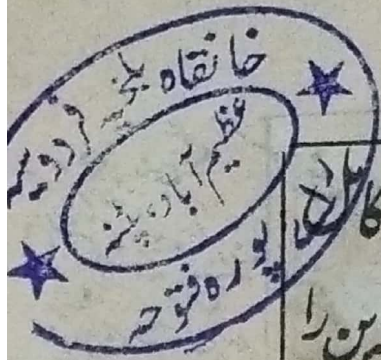 خانقاہ بلخیہ فردوسیہ
عظیم آباد پٹنہ
پورہ فتوحہ
کا
را